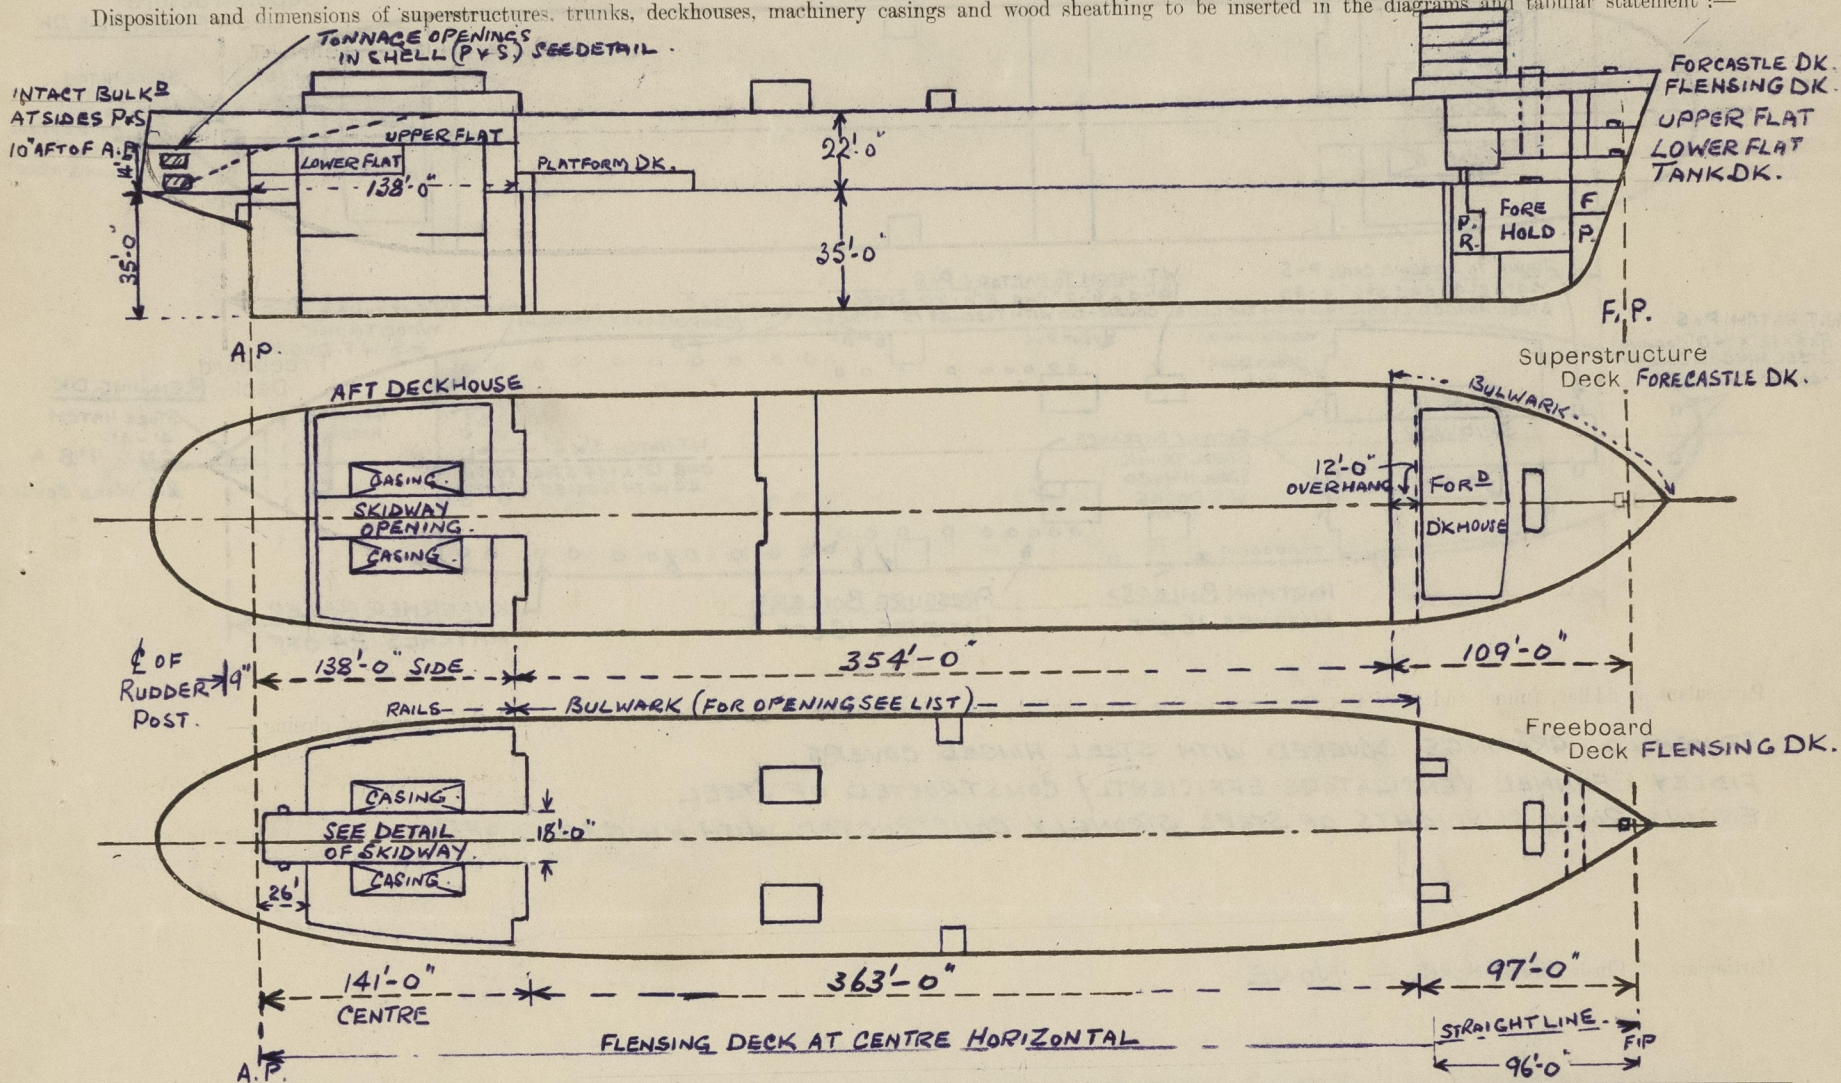 Disposition and dimensions of superstructures, trunks, deckhouses, machinery casings and wood sheathing to be inserted in the diagrams and tabular statement :—
TONNAGE OPENINGS
IN SHELL (P & S) SEE DETAIL.
INTACT BULKD
AT SIDES P&S
10" AFT OF A.P.
UPPER FLAT
LOWER FLAT
138'-0"
PLATFORM DK.
22'-0"
35'-0"
35'-0"
P.
R.
FORE
HOLD
F.
P.
FORCASTLE DK.
FLENSING DK.
UPPER FLAT
LOWER FLAT
TANK DK.
A.P.
F.P.
Superstructure
Deck FORECASTLE DK.
AFT DECKHOUSE
BULWARK
CASING
SKIDWAY
OPENING.
CASING
12'-0"
OVERHANG
FORD
DKHOUSE
℄ OF
RUDDER
POST.
9"
138'-0" SIDE
354'-0"
109'-0"
RAILS
BULWARK (FOR OPENING SEE LIST)
Freeboard
Deck FLENSING DK.
CASING
SEE DETAIL
OF SKIDWAY.
CASING
18'-0"
26'
141'-0"
CENTRE
363'-0"
97'-0"
FLENSING DECK AT CENTRE HORIZONTAL
STRAIGHT LINE
F.P
96'-0"
A.P.